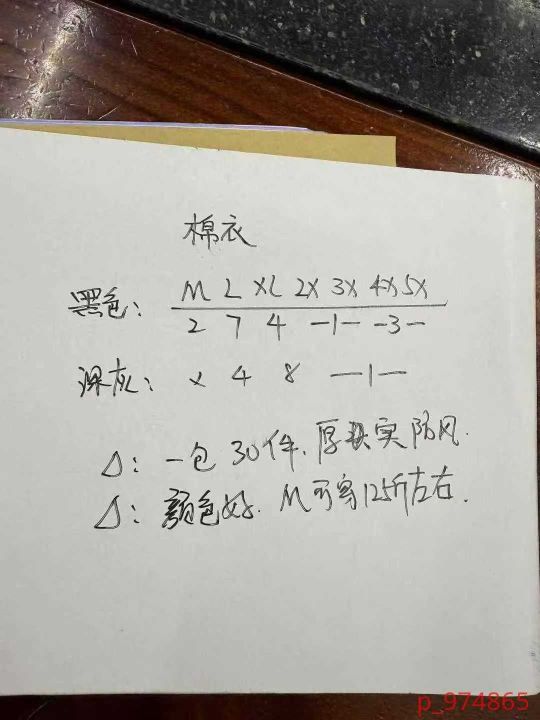 棉衣
黑色: M L XL 2X 3X 4X 5X
2 7 4 —1— —3—
深灰: × 4 8 —1—
△: 一包30件. 厚实防风.
△: 颜色好. M可穿125斤左右.
p_974865